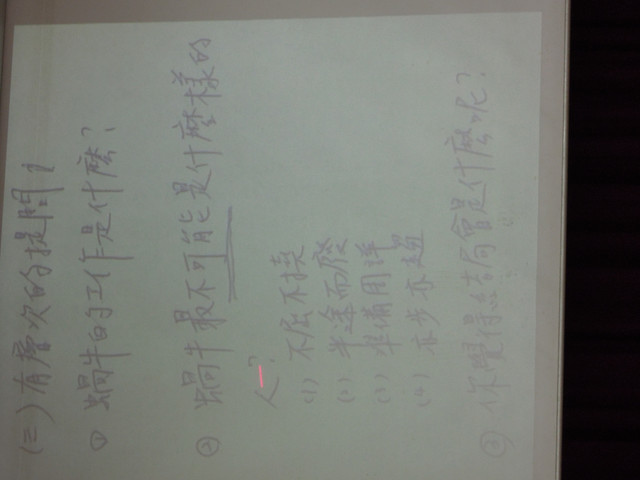 (二)有層次的提問:
① 蝸牛的工作是什麼?
② 蝸牛最不可能是什麼樣的
人?
(1) 不屈不撓
(2) 半途而廢
(3) 準備周詳
(4) 亦步亦趨
③ 你覺得結局會是什麼呢?